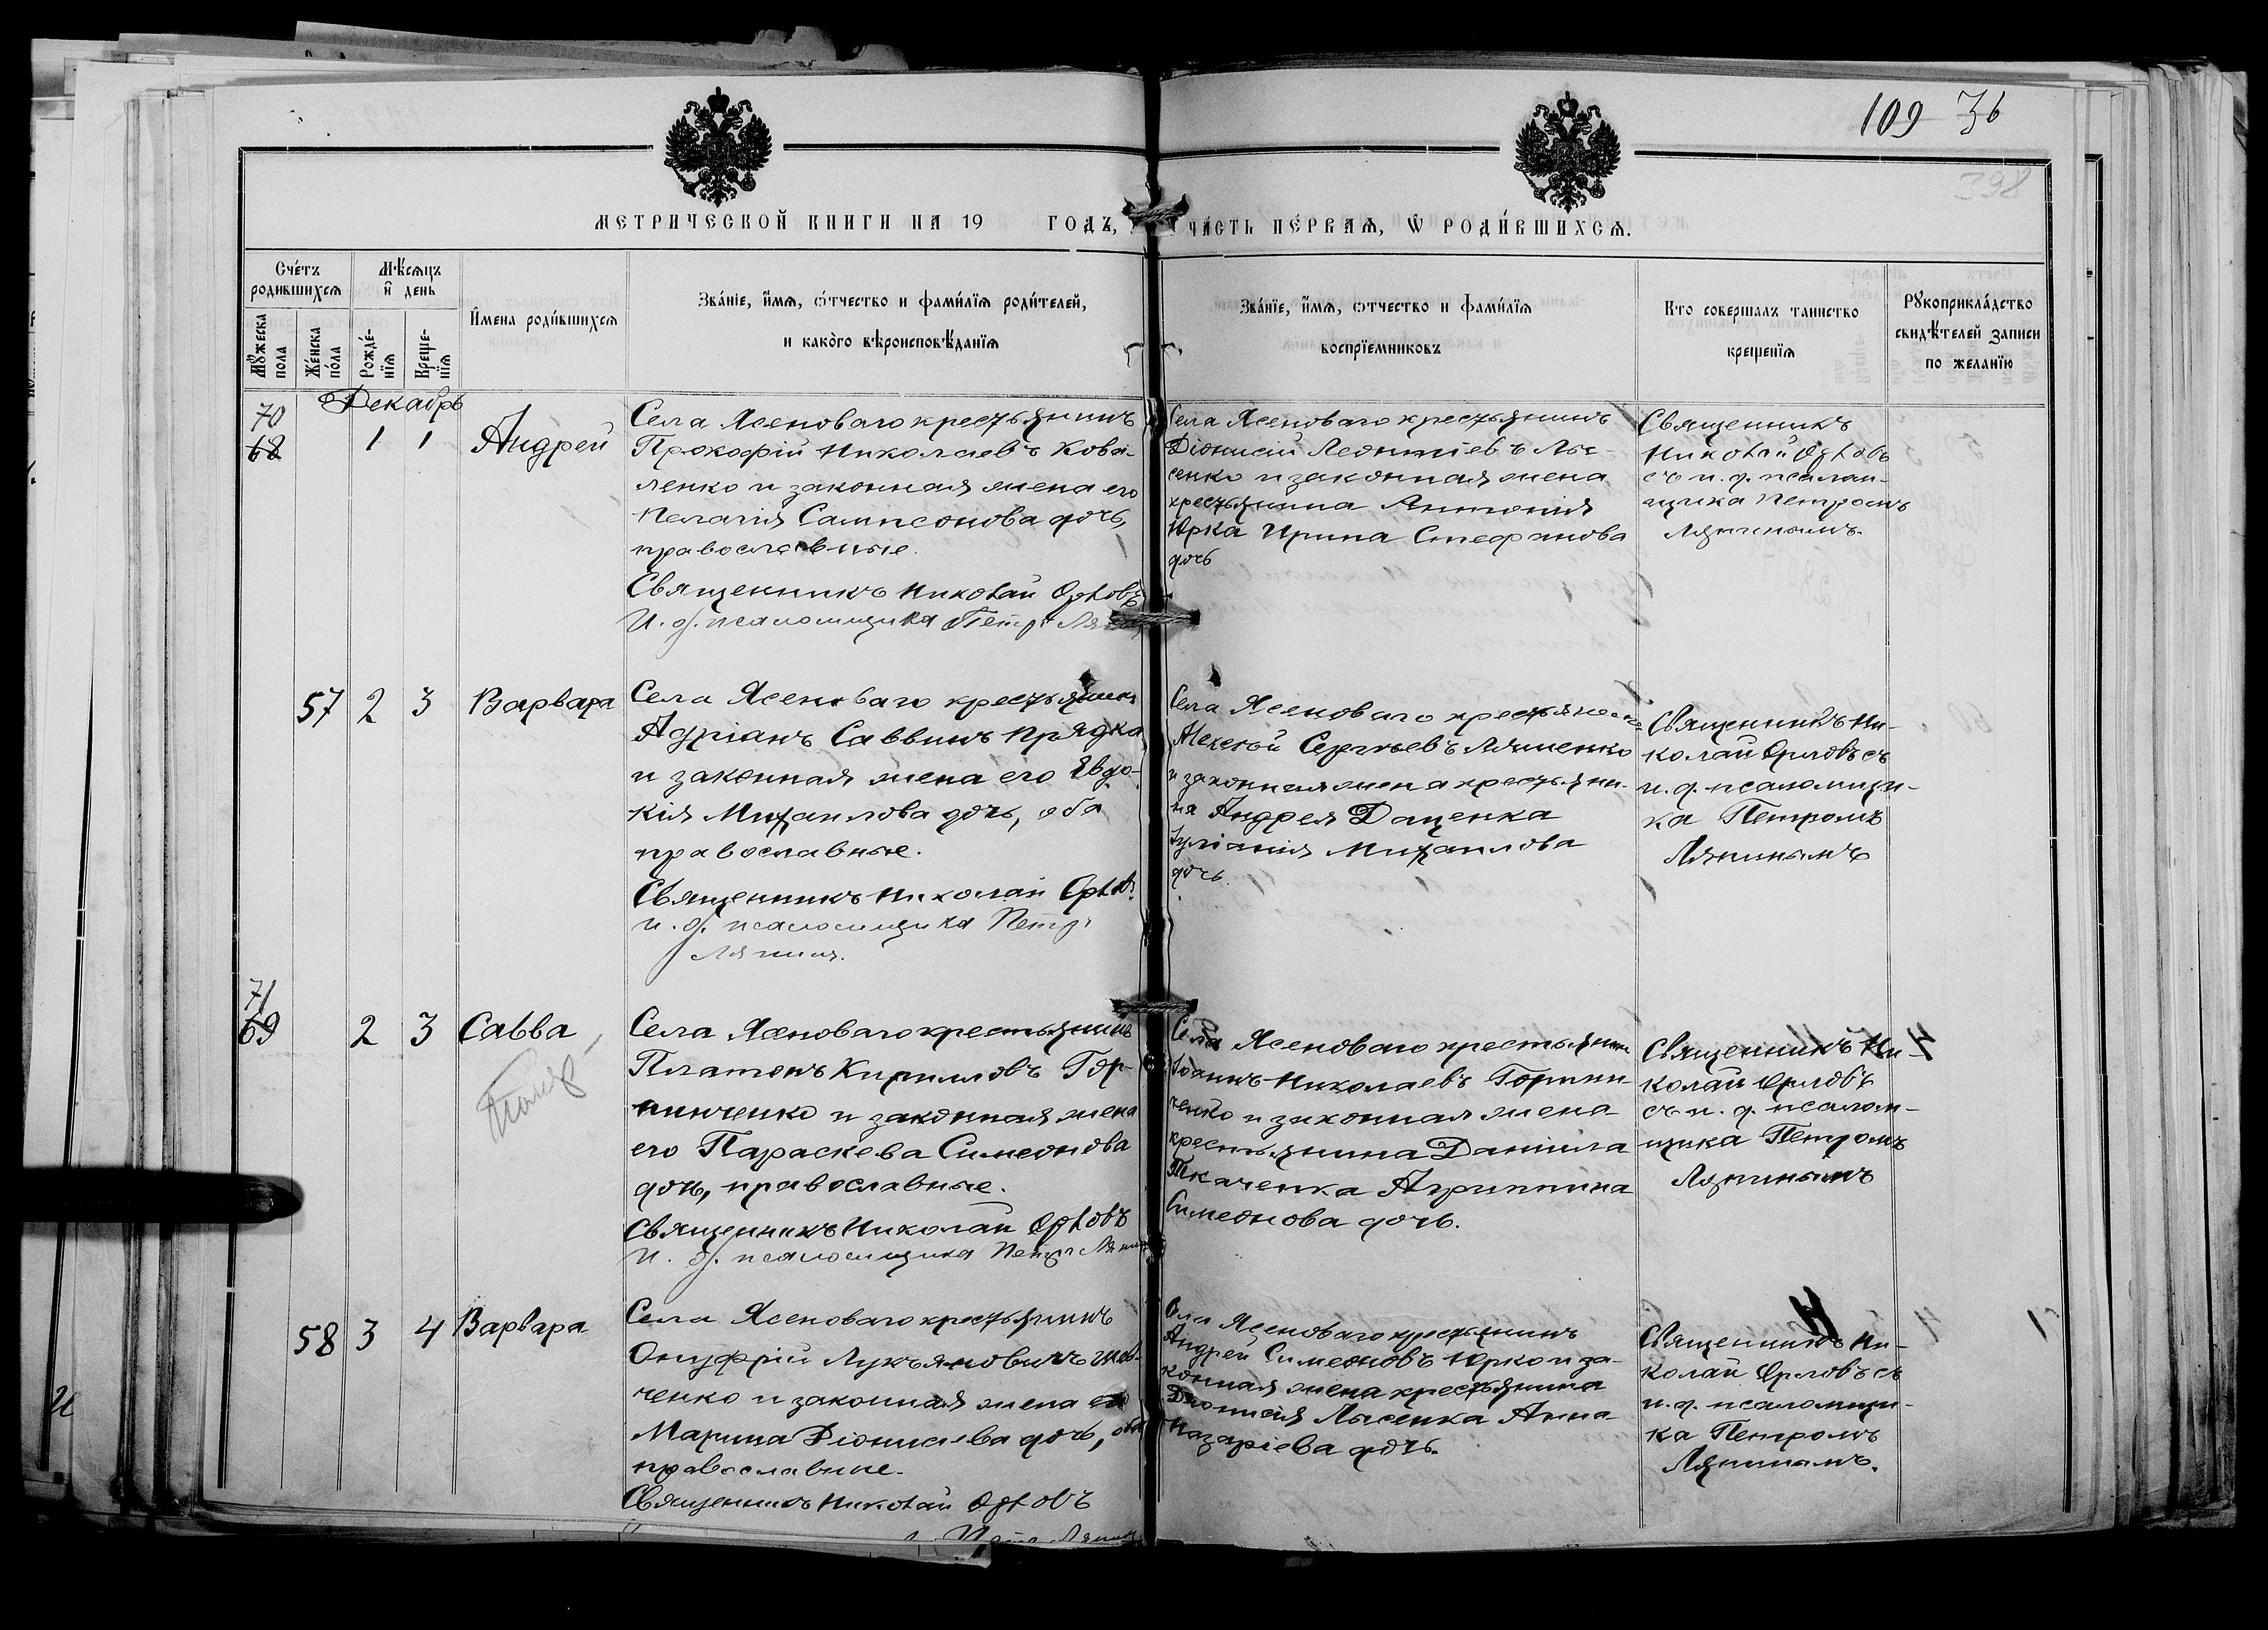 109 36
398
МЕТРИЧЕСКОЙ КНИГИ НА 19 ГОДЪ, ЧАСТЬ ПЕРВАЯ, Ѡ РОДИВШИХСЯ.
Счетъ родившихся
Мѣсяцъ и день
Имена родившихся
Званіе, имя, отчество и фамилія родителей,
и какого вѣроисповѣданія
Званіе, имя, отчество и фамилія
воспріемниковъ
Кто совершалъ таинство
крещенія
Рукоприкладство
свидѣтелей записи
по желанію
Мужеска пола
Женска пола
Рожденія
Крещенія
Декабрь
70
68
1 1
Андрей
Села Ясеноваго крестьянинъ
Прокофій Николаевъ Кова-
ленко и законная жена его
Пелагія Сампсонова дочь,
православные.
Священникъ Николай Орловъ
И. д. псаломщика Петръ
Села Ясеноваго крестьянинъ
Діонисій Леонтіевъ Лы-
сенко и законная жена
крестьянина Антонія
Юрка Ирина Стефанова
дочь
Священникъ
Николай Орловъ
съ и. д. псалом-
щика Петромъ
Ляпинымъ.
57 2 3
Варвара
Села Ясеноваго крестьянинъ
Адріанъ Саввинъ Прядка
и законная жена его Евдо-
кія Михаилова дочь, оба
православные.
Священникъ Николай Орловъ
и. д. псаломщика Петръ
Ляпинъ.
Села Ясеноваго крестьянинъ
Алексій Сергіевъ
и законная жена крестьяни-
на Андрея Даценка
Іуліанія Михаилова
дочь.
Священникъ Ни-
колай Орловъ съ
и. д. псаломщи-
ка Петромъ
Ляпинымъ
71
69
2 3
Савва
Села Ясеноваго крестьянинъ
Платонъ Кирилловъ Гор-
пинченко и законная жена
его Параскева Симеонова
дочь, православные.
Священникъ Николай Орловъ
И. д. псаломщика Петръ Ляпинъ
Села Ясеноваго крестьянинъ
Іоаннъ Николаевъ Горпин-
ченко и законная жена
крестьянина Даніила
Ткаченка Агриппина
Симеонова дочь.
Священникъ Ни-
колай Орловъ
съ и. д. псалом-
щика Петромъ
Ляпинымъ
58 3 4
Варвара
Села Ясеноваго крестьянинъ
Онуфрій Лукьяновичъ Шев-
ченко и законная жена его
Марина Діонисіева дочь, оба
православные.
Священникъ Николай Орловъ
Петръ Ляпинъ
Села Ясеноваго крестьянинъ
Андрей Симеоновъ Юрко и за-
конная жена крестьянина
Діонисія Лысенка Анна
Назаріева дочь.
Священникъ Ни-
колай Орловъ съ
и. д. псаломщи-
ка Петромъ
Ляпинымъ.